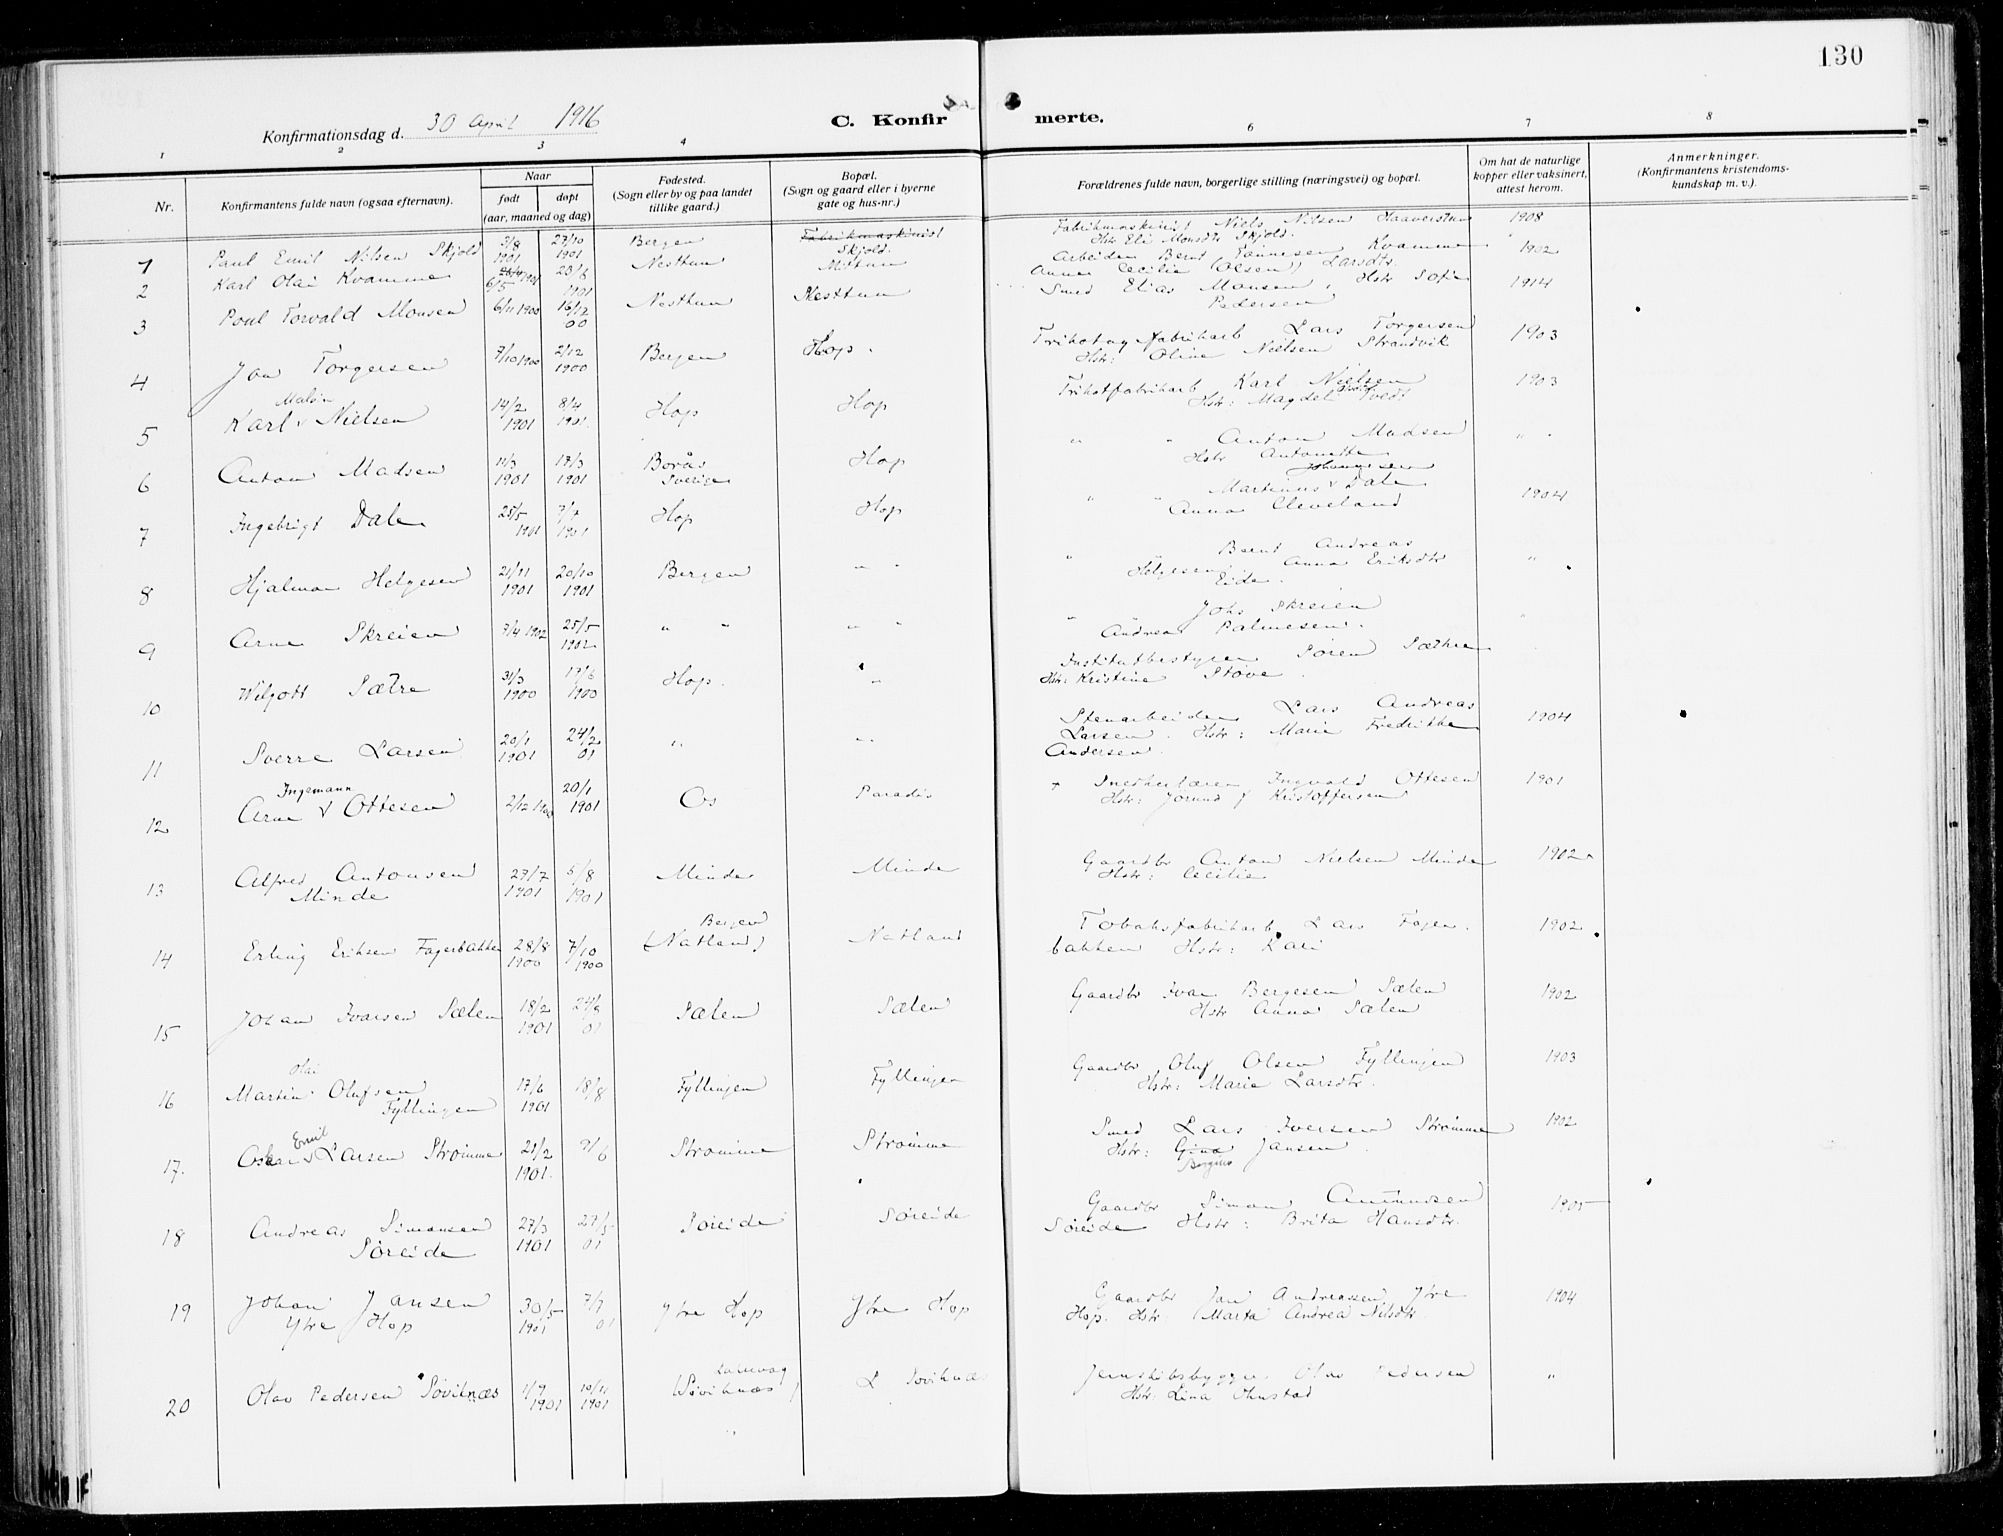 130
Konfirmationsdag d. 30 April 1916
C. Konfirmerte.
1 2 3 4 6 7 8
Nr.
Konfirmantens fulde navn (ogsaa efternavn).
Naar
født døpt
(aar, maaned og dag)
Fødested.
(Sogn eller by og paa landet
tillike gaard.)
Bopæl.
(Sogn og gaard eller i byerne
gate og hus-nr.)
Forældrenes fulde navn, borgerlige stilling (næringsvei) og bopæl.
Om hat de naturlige
kopper eller vaksinert,
attest herom.
Anmerkninger.
(Konfirmantens kristendoms-
kundskap m. v.).
1 Paul Emil Nilsen Skjold 3/8 1901 27/10 1901 Bergen Fabrikmaskinist Skjold Fabrikmaskinist Niels Nilsen Haaverstun 1908
Hstr Eli Monsdtr Skjold.
2 Karl Olai Kvamme 6/5 1901 23/6 1901 Nesttun Midtun Arbeider Bernt Tønnesen Kvamme 1902
Anna Cecilie (Olsen) Larsdtr.
3 Poul Torvald Monsen 6/11 1900 16/12 00 Nesttun Nesttun Smed Elias Monsen, Hstr Sofie 1914
Pedersen
4 Jon Torgersen 7/10 1900 2/12 1900 Bergen Hop. Trikotagefabrikarb Lars Torgersen 1903
Hstr: Oline Nielsen Strandvik
Malvin
5 Karl v Nielsen 14/2 1901 8/4 1901. Hop Hop Trikotfabrikarb Karl Nielsen 1903
Hstr: Magdeli Tvedt
6 Anton Madsen 11/3 1901 17/3 1901 Borås Sverige Hop " " Anton Madsen " "
Hstr Antonette
Johannessen
7 Ingebrigt Dale 25/5 1901 7/7 1901 Hop Hop " " Martinus v Dale 1904
Anna Cleveland
8 Hjalmar Helgesen 21/11 1901 20/10 1901 Bergen " " " Bernt Andreas "
Helgesen, Anna Eriksdtr
Eide.
9 Arne Skreien 7/4 1902 25/5 1902 " " " " " " Johs Skreien "
Andrea Palmesen.
10 Wilgott Sætre 31/3 1900 17/6 1900 Hop. " Institutbestyrer Søren Sæthre
Hstr: Kristine Støve.
11 Sverre Larsen 20/1 1901 24/2 01 " " Stenarbeider Lars Andreas 1904
Larsen. Hstr: Marie Fredrikke
Andersen.
Ingemann
12 Arne v Ottesen 2/12 1900 20/1 1901 Os Paradis + Snedkerlærer Ingvald Ottesen 1901
Hstr: Jorund f Kristoffersen
13 Alfred Antonsen 27/7 1901 5/8 1901 Minde Minde Gaardbr Anton Nielsen Minde 1902
Minde Hstr: Cecilie
14 Erling Eriksen Fagerbakke 28/8 1900 7/10 1900 Bergen (Natland) Natland Tobaksfabrikarb. Lars Fager- 1902
bakken Hstr: Kari
15 Johan Ivarsen Sælen 18/2 1901 24/6 01 Sælen Sælen Gaardbr Ivar Bergesen Sælen 1902
Hstr Anna Sælen
Olai
16 Martin Olufsen 17/6 1901 18/8 Fyllingen Fyllingen Gaardbr Oluf Olsen Fyllingen 1903
Fyllingen Hstr: Marie Larsdtr.
Emil
17. Oskar v Larsen Strømme 21/2 1901. 9/6 Strømme Strømme Smed Lars Iversen Strømme 1902
Hstr: Gina Jansen.
18 Andreas Simonsen 27/3 1901 27/5 01 Søreide Søreide Gaardbr Simon Amundsen 1905
Søreide Søreide Hstr: Brita Hansdtr.
19 Johan Jansen 30/5 1901 7/7 01 Ytre Hop Ytre Hop Gaardbr Jan Andreassen Ytre 1904
Ytre Hop Hop. Hstr: Marta Andrea Nilsdtr.
20 Olav Pedersen Søviknæs 1/9 1901 10/11 1901 Laksevåg (Søviknæs) L Søviknæs Jernskibsbygger Olav Pedersen "
Hstr: Lina Ohnstad